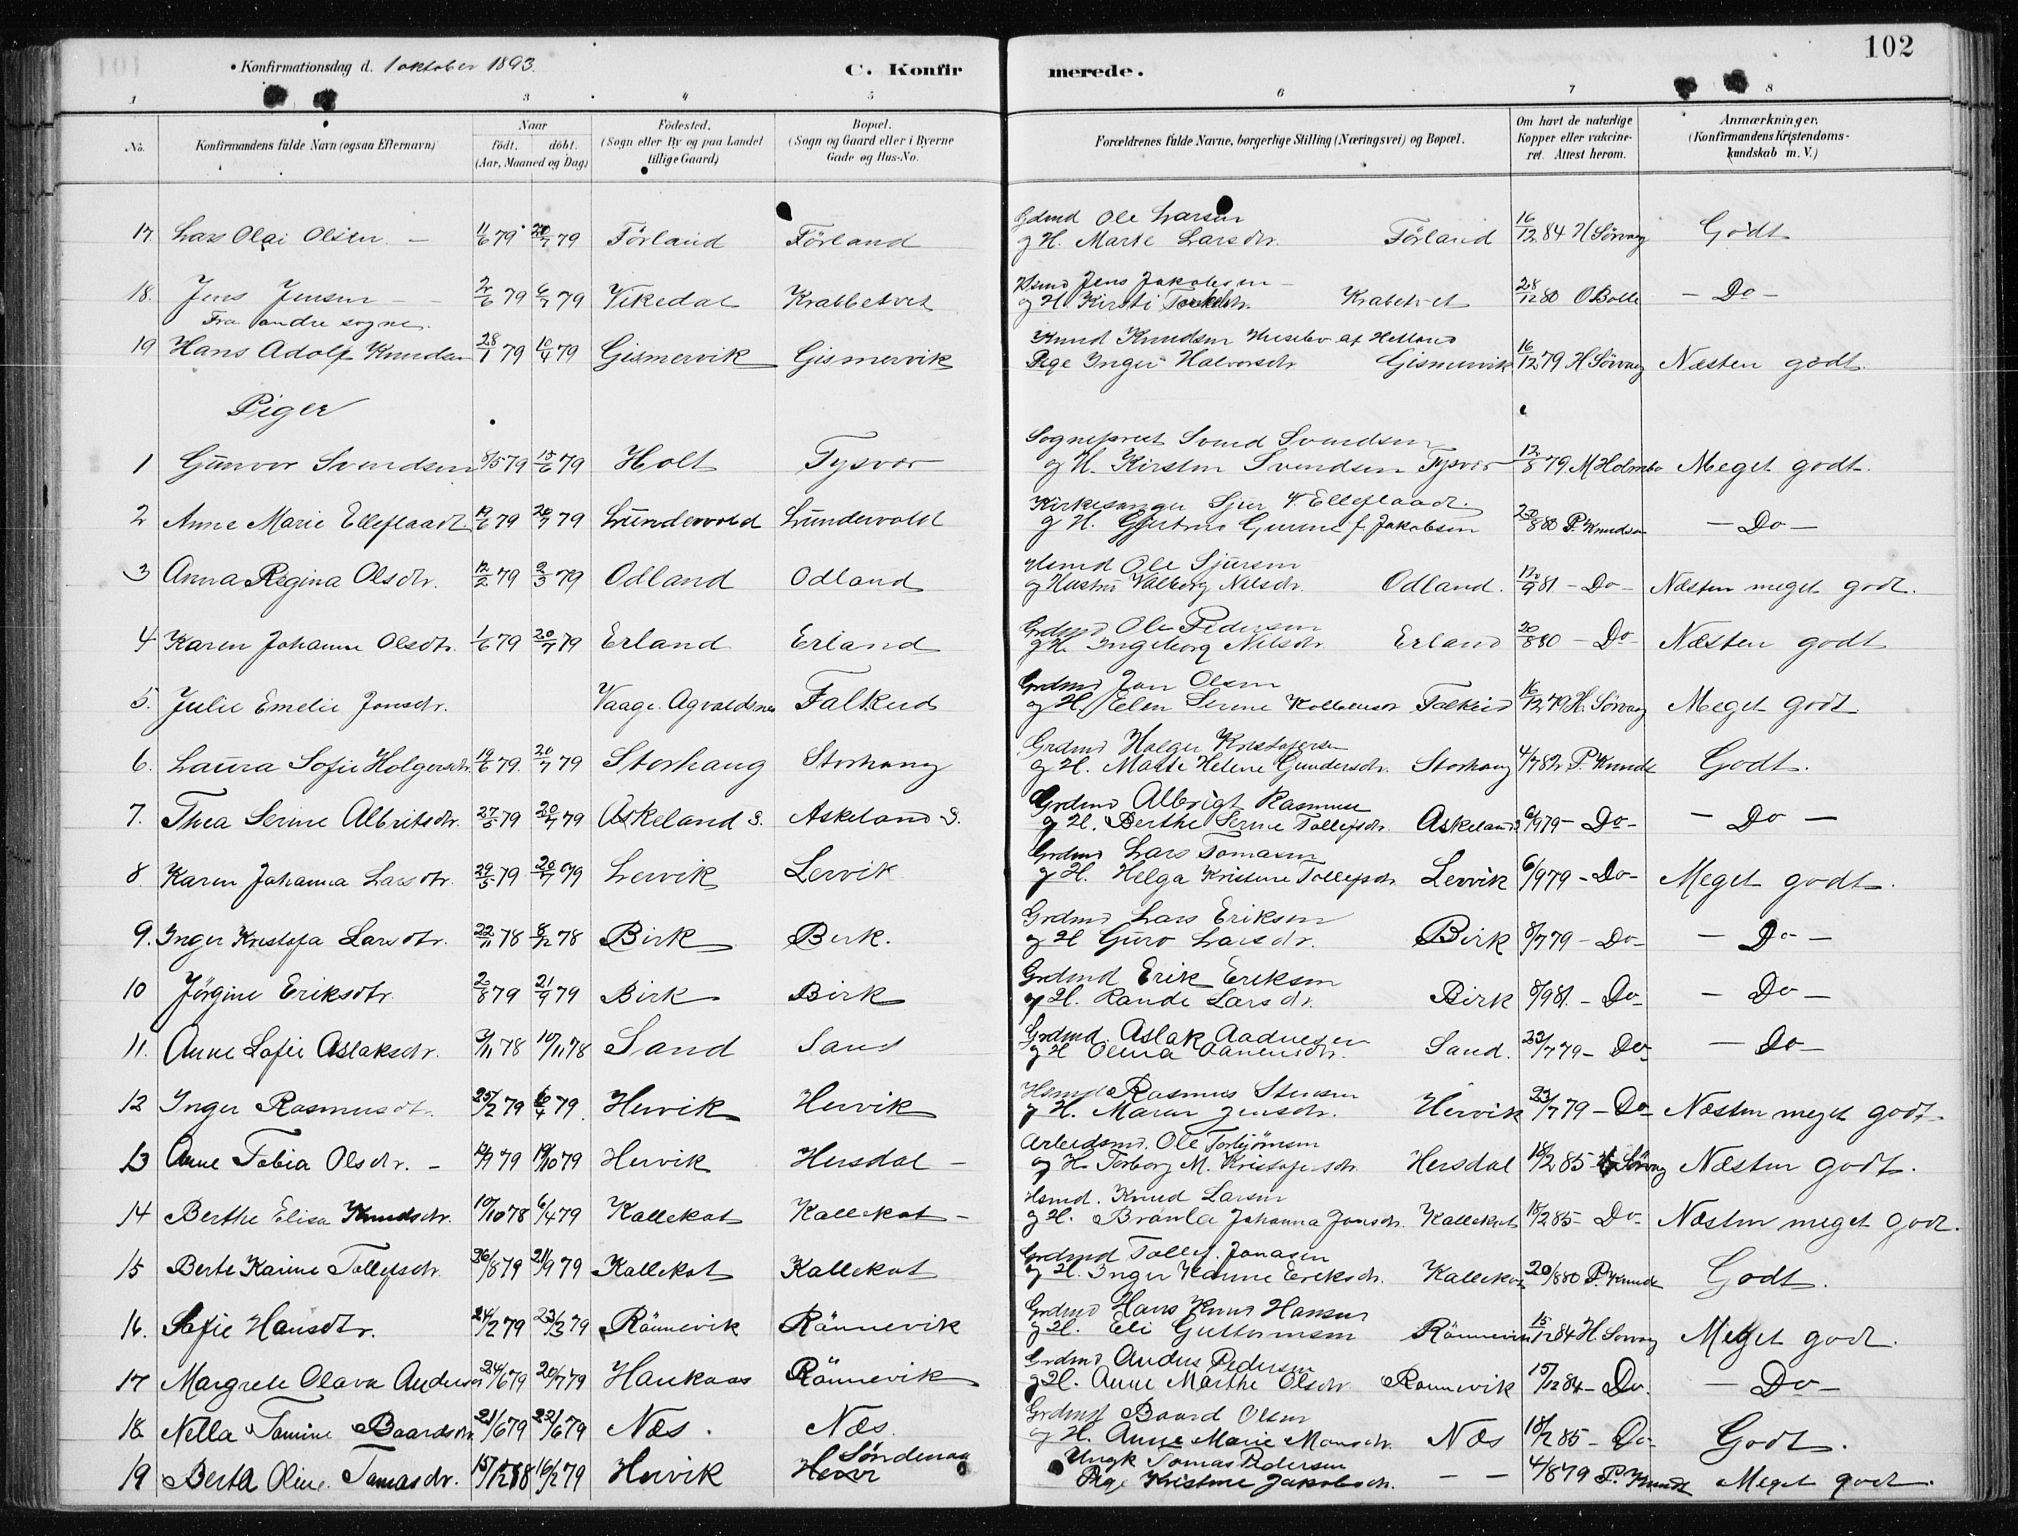 102
Konfirmationsdag d. 1 oktober 1893.
C. Konfirmerede.
1 3 4 5 6 7 8
No.
Konfirmandens fulde Navn (ogsaa Efternavn)
Naar
født. døbt.
(Aar, Maaned og Dag)
Fødested.
(Sogn eller By og paa Landet
tillige Gaard)
Bopæl.
(Sogn og Gaard eller i Byerne
Gade og Hus-No.
Forældrenes fulde Navne, borgerlige Stilling (Næringsvei) og Bopæl.
Om havt de naturlige
Kopper eller vakcine-
ret. Attest herom.
Anmærkninger.
(Konfirmandens Kristendoms-
kundskab m. V.)
Gdmd Ole Larsen
17 Lars Olai Olsen 11/6 79 20/7 79 Førland Førland og H. Marte Larsdtr. Førland 16/12 84 H Sørvag Godt
Hsmd Jens Jakobsen
18. Jens Jensen 2/6 79 6/7 79 Vikedal Krabbetvet og H Kirsti Krabetvet 28/12 80 O Bolle - Do -
Fra andre sogne.
Knud Knudsen Husebø af Hetland
19 Hans Adolf Knudsen 28/1 79 10/4 79 Gismervik Gismervik Pige Inger Halvorsdtr Gismervik 16/12 79 H Sørvag Næsten godt.
Piger
Sogneprest Svend Svendsen
1 Gunvor Svendsen 8/5 79 15/6 79 Holt Tysvær og H. Kirsten Svendsen Tysvær 12/8 79 M Holmbo Meget godt.
Kirkesanger Sjur V. Elleflaadt.
2 Anne Marie Elleflaadt 12/6 79 20/7 79 Lundervold Lundervold og H. Gunne f. Jakobsen 20/8 80 P. Knudsen - Do -
Hsmd Ole Sjursen
3 Anna Regina Olsdtr. 12/2 79 2/3 79 Odland Odland og Hustru Valborg Nilsdtr. Odland. 12/9 81 - Do - Næsten meget godt.
Grdmd Ole Pedersen
4 Karen Johanne Olsdtr. 1/6 79 20/7 79 Erland Erland og H. Ingeborg Nilsdtr Erland 20/8 80 - Do - Næsten godt
Grdmd Jon Olsen
5. Julie Emelie Jonsdr. Vaage Agvaldsnes Falkeid og H. Elen Serine Falkeid 16/12 79 H. Sørvag Meget godt
Grdmd Holger Kristofersen
6. Laura Sofie Holgersdtr. 19/6 79. 20/7 79 Storhaug Storhaug og H. Marte Helene Gundersdtr. Storhaug 4/7 82 P. Knudt Godt.
Grdmd Albrigt Rasmuse
7. Thea Serine Albritsdtr. 27/5 79 20/7 79 Askeland S. Askeland S. og H. Berthe Serine Tollefsdtr. Askeland 6/9 79 - Do - - Do -
Grdmd Lars Tomasen
8. Karen Johanna Larsdtr. 29/5 79 20/7 79 Lervik Lervik og H. Helga Kristine Tollefsdtr Lervik 6/9 79 - Do - Meget godt.
Grdmd Lars Eriksen
9. Inger Kristofa Larsdtr. 22/11 78 8/12 78 Birk Birk. og H Guro Larsdr. Birk 8/7 79 - Do - - Do -
Grdmd Erik Eriksen
10 Jørgine Eriksdtr. 2/8 79 21/9 79 Birk Birk og H. Rande Larsdr. Birk 8/9 81. - Do - - Do -
Grdmd Aslak Aadnesen
11. Anne Sofie Aslaksdr. 3/11 78 10/11 78 Sand Sand og H Olena Sand. 23/7 79 - Do - - Do -
Hsmd Rasmus Stensen
12 Inger Rasmusdtr. 25/2 79 6/4 79. Hervik Hervik og H. Maren Jensdr. Hervik 23/7 79 - Do Næsten meget godt
Arbeidsmd. Ole Torbjørnsen
13 Anne Tobia Olsdr. - 12/9 79 19/10 79 Hervik Hersdal - og H. Torborg M. Kristofersdr. Hersdal 18/2 85 - H Sørvag Næsten godt.
Hsmd. Knud Larsen
14 Berthe Elisa Knudsdr. 10/10 78 6/4 79 Kallekot Kallekot - og H. Brønla Johanna Jonsdr. Kallekot 18/2 85 - Do - Næsten meget godt.
Grdmd Tollef. Jonasen
15 Berte Karine Tollefsdr. 26/8 79 21/9 79 Kallekot Kallekot og H. Inger Karine Eriksdr. Kallekot 20/8 80 P. Knudt Godt.
Grdmd Hans Knud Hansen
16. Sofie Hansdtr. 24/2 79 23/3 79 Rønnevik Rønnevik og H. Eli Guttormsen Rønnevik 15/12 84 H Sørvag Meget godt.
Grdmd Anders Pedersen
17 Margrete Olava Anders 24/6 79 20/7 79 Haukaas Rønnevik og H. Anne Marthe Olsdr Rønnevik 15/12 84 - Do. - Do -
Grdmd Baard Olsen
18. Nella Tomine Baardsdr. 21/6 79 22/6 79 Næs. Næs. og H. Anne Marie Monsdr. Næs 18/2 85 - Do - Godt.
Søndenaa
Ungk Tomas Pedersen
19 Berta Oline Tomasdr. 15/12 78 16/2 79 Hervik Pige Kristine Jakobsdr. - - 4/8 79 P. Knudt Meget godt.